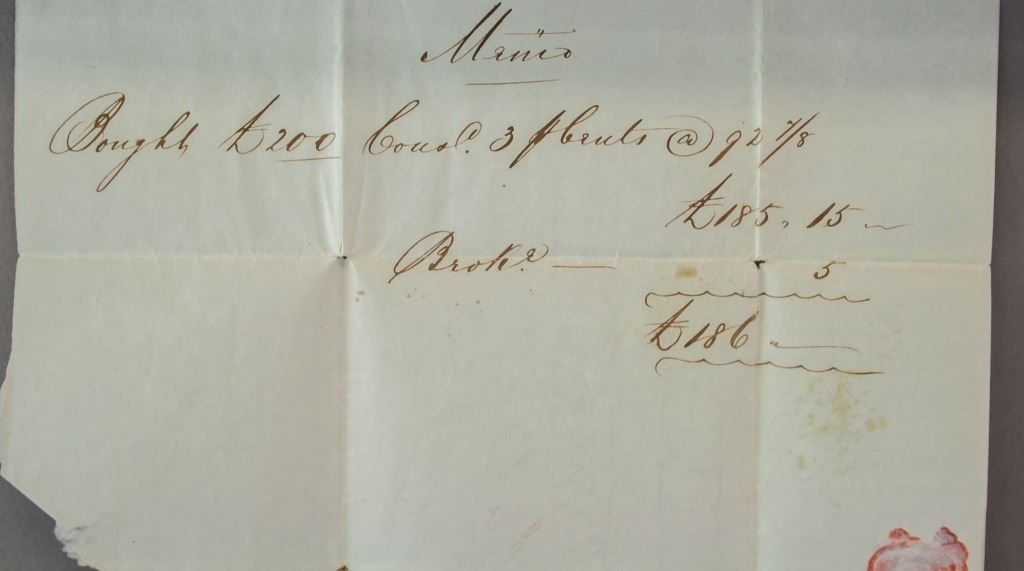 Memo
Bought £200 Consd. 3 ⅌ Cents @ 92 7/8
£185, 15 —
Broke. — 5
£186 " —